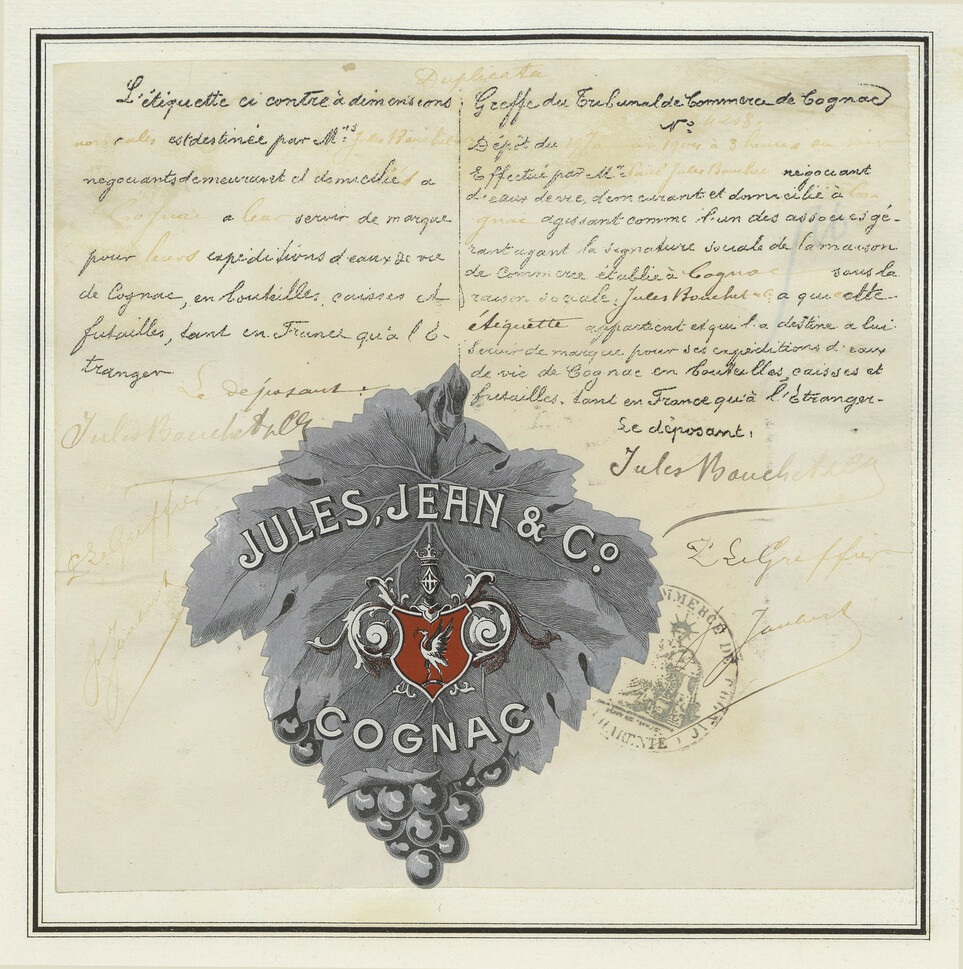 Duplicata
L'étiquette ci contre à dimensions
est destinée par M.rs Jules Bouchet
negociants demeurant et domiciliés a
Cognac a leur servir de marque
pour leurs expéditions d'eaux de vie
de Cognac, en bouteilles, caisses et
futailles, tant en France qu'à l'É-
tranger
Le déposant:
Jules Bouchet & Co
P. Le Greffier
Greffe du Tribunal de Commerce de Cognac
N.o
Dépôt du à 3 heures du soir
Effectué par M.r Paul Jules Bouchet négociant
d'eaux de vie, demeurant et domicilié à Co
gnac agissant comme l'un des associés gé-
rant ayant la signature sociale de la maison
de Commerce établie à Cognac sous la
raison sociale. Jules Bouchet & Co a qui cette
étiquette appartient et qui l'a destine a lui
servir de marque pour ses expéditions d'eaux
de vie de Cognac en bouteilles, caisses et
futailles. tant en France qu'à l'Étranger-
Le déposant:
Jules Bouchet & Co
P. Le Greffier
JULES, JEAN & Co.
COGNAC
COMMERCE DE COGNAC
CHARENTE